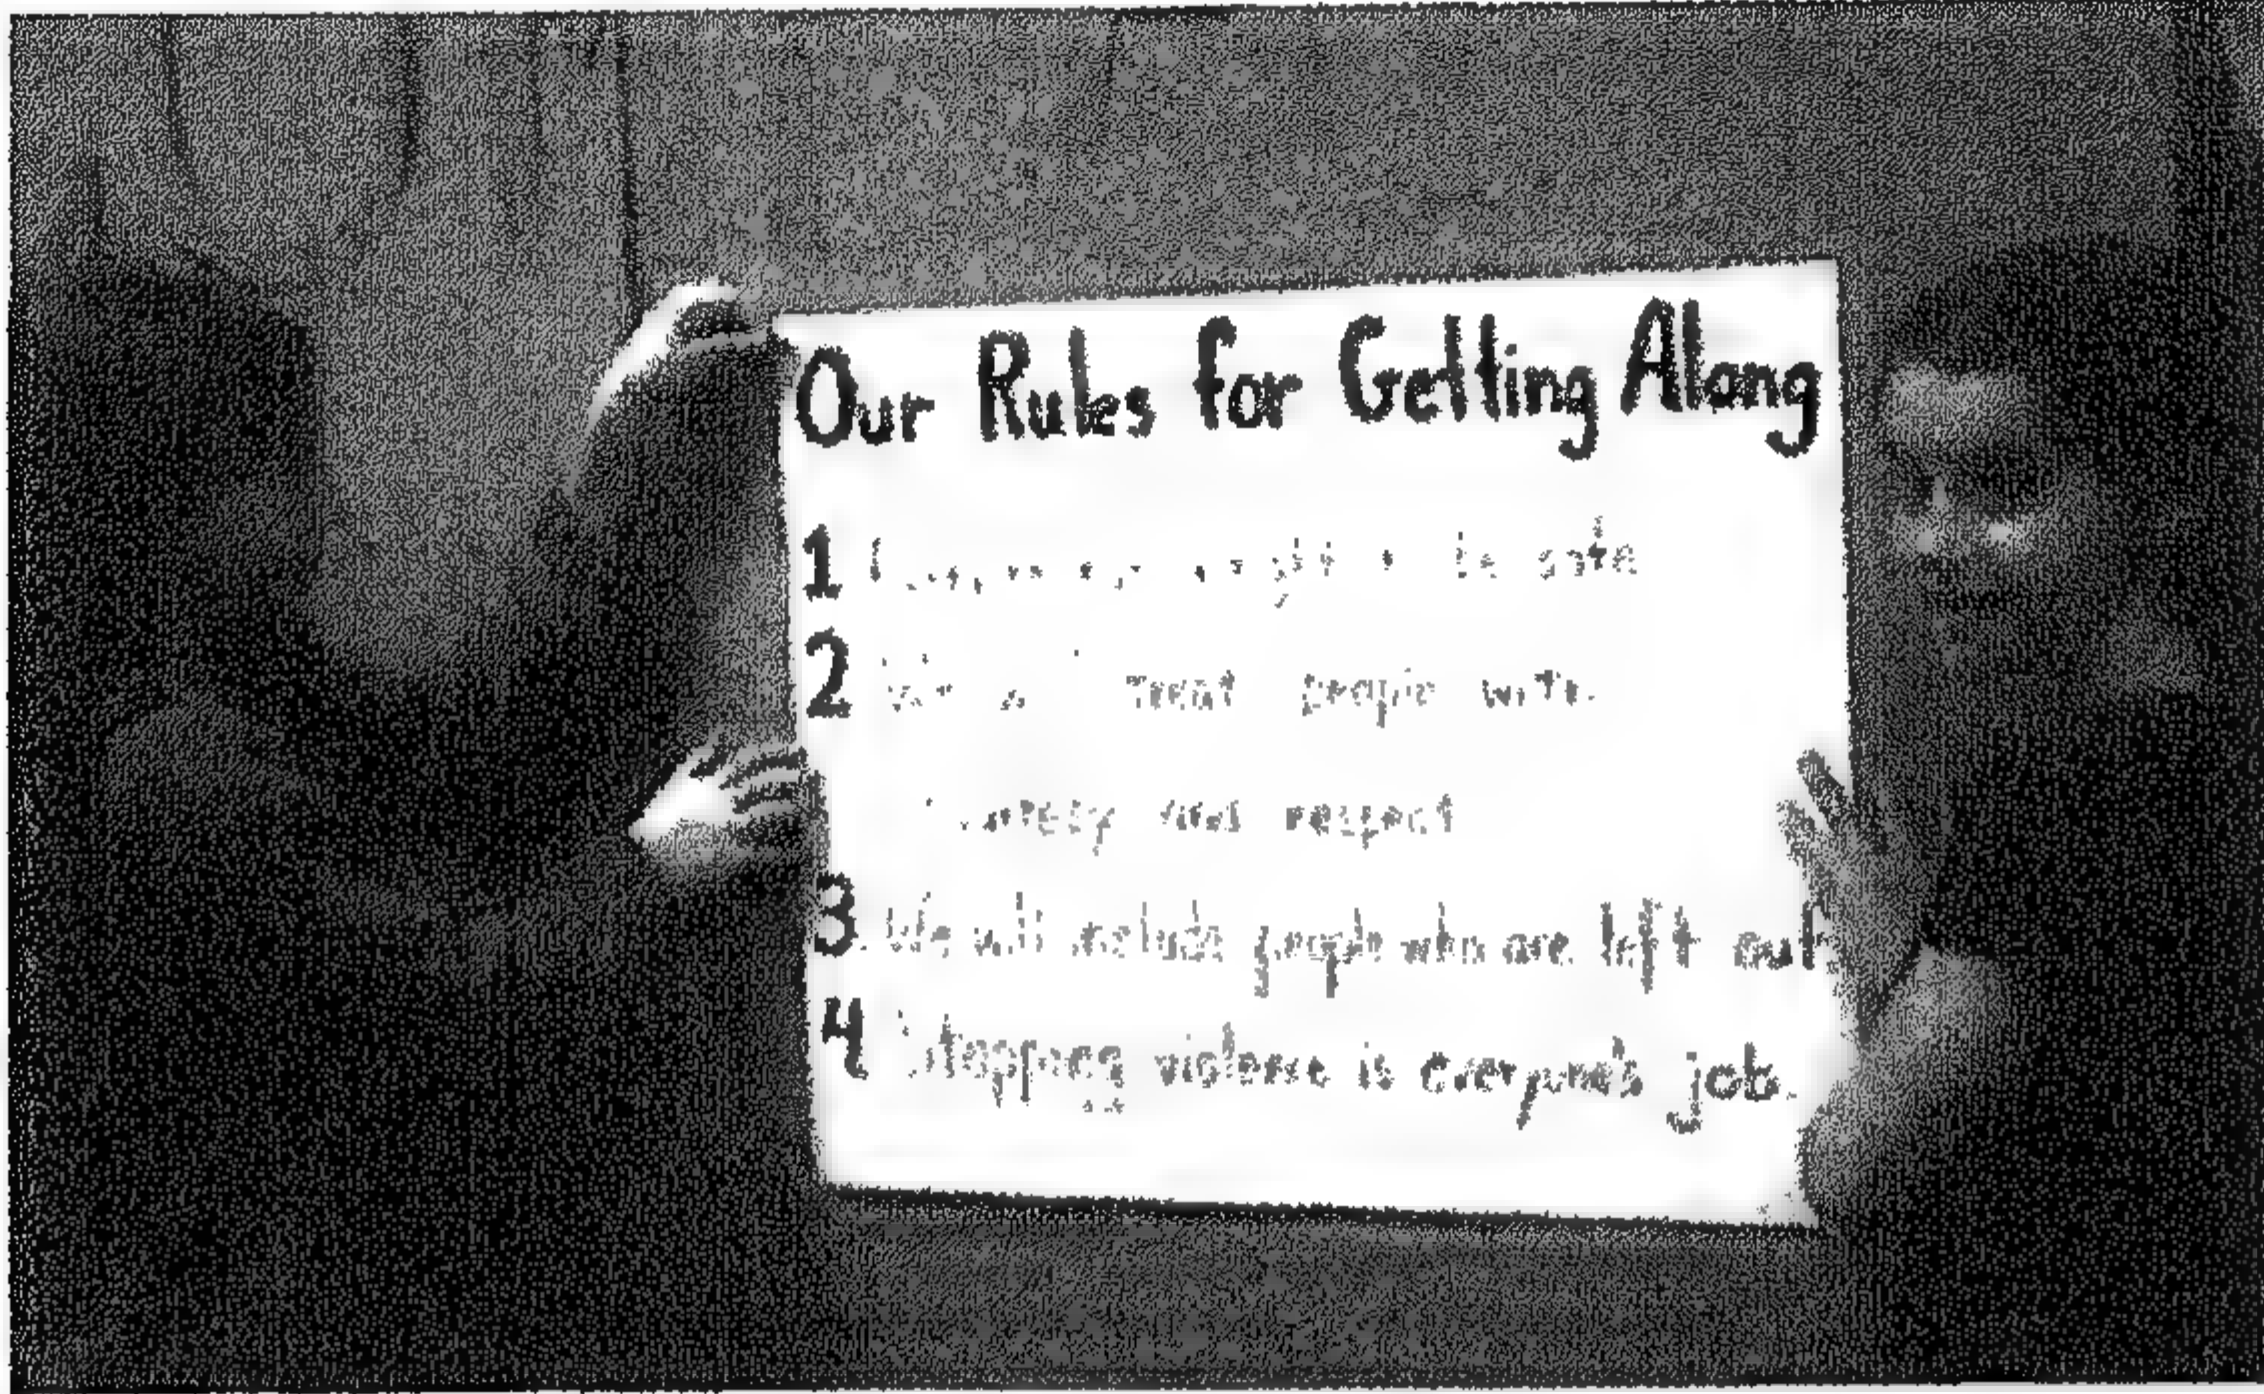 Our Rules for Getting Along
1 be safe
2 treat people with
and respect
3. We will include people who are left out.
4 Stopping violence is everyone's job.